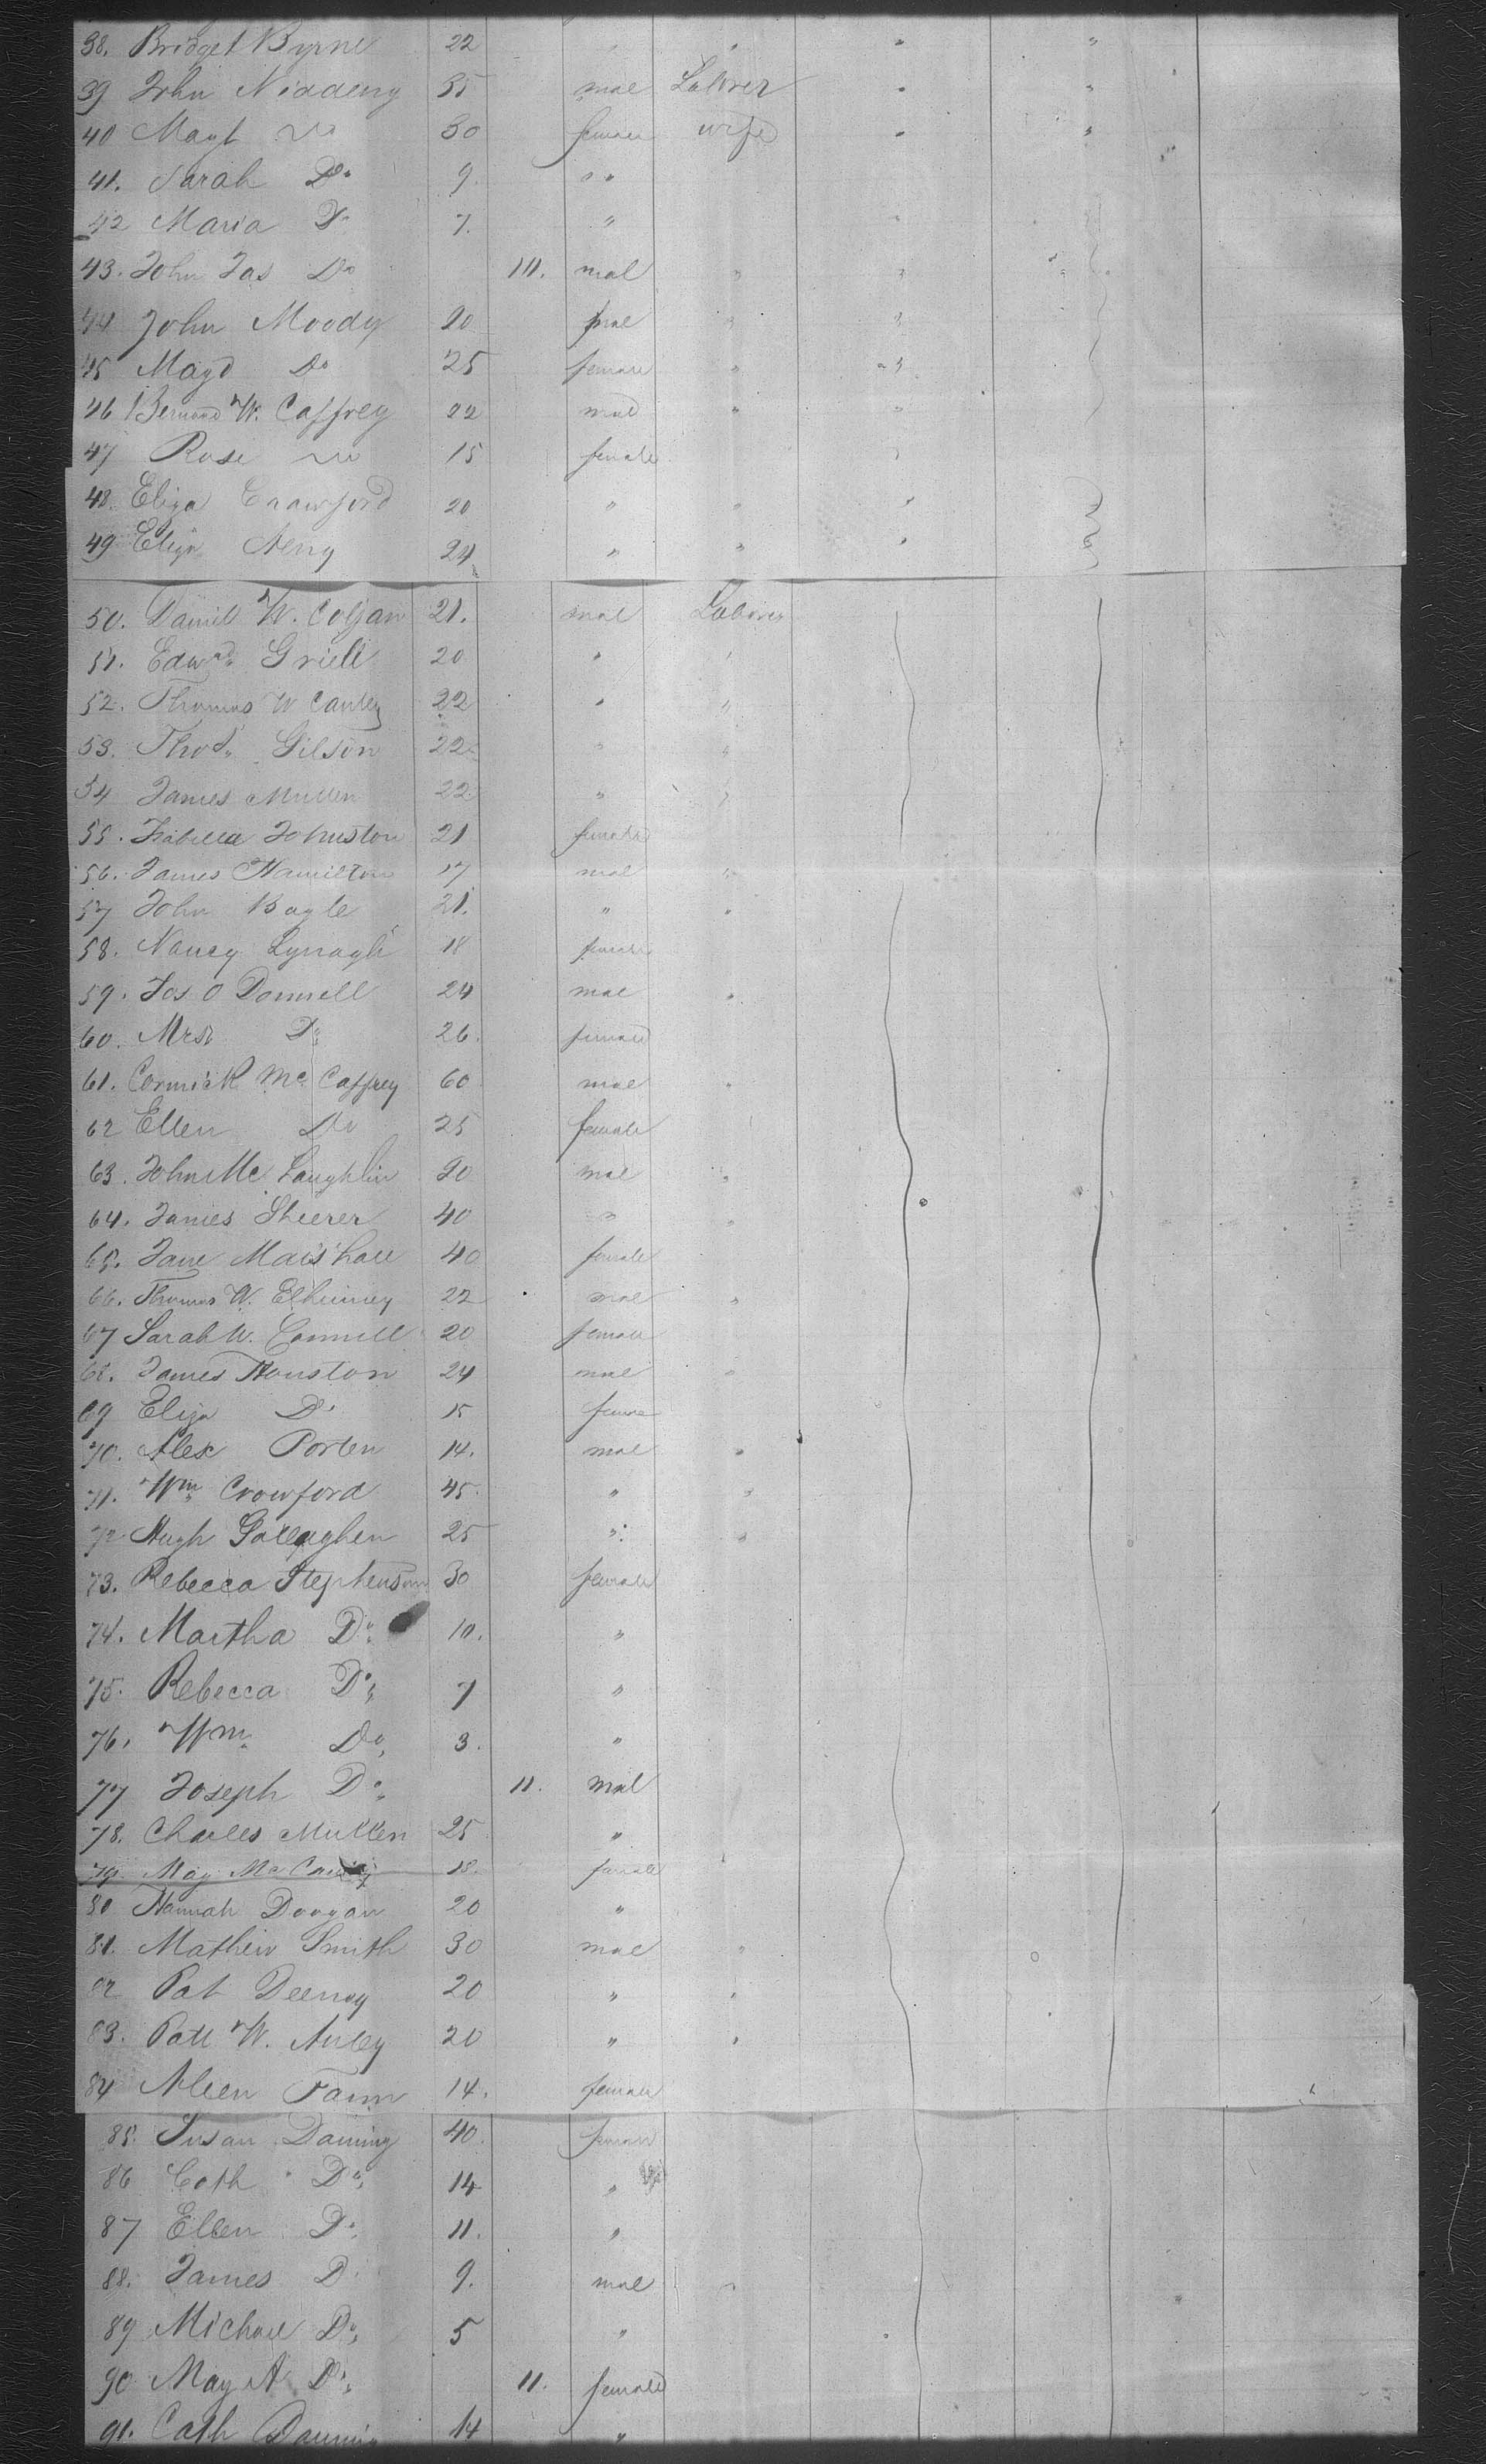 38. Bridget Byrne 22 " " " "
39 John Niddeny 35 male Laborer " "
40 Magt Do 30 female wife " "
41. Sarah Do 9. " "
42 Maria Do 7. "
43. John Jas Do 111. mal " "
44 John Moody 20 male " "
45 Magt Do 25 female " "
46 Bernard W. Caffrey 22 mal " "
47 Rose Do 15 female "
48. Eliza Crawford 20 " " "
49 Eliza 24 " " "
50. Daniel W. Colgan 21. mal Laborer
51. Edwd. Griell 20 " "
52. Thomas W Canley 22 " "
53. Thos. Gilson 22 " "
54 James Mullen 22 " "
55. Isabella Johnston 21 female
56. James Hamilton 17 mal "
57 John Bogle 21. " "
58. Nancy Lynagh 18 female
59. Jos O Donnell 24 mal "
60. Mrs. Do 26. female
61. Cormick Mc. Caffrey 60 male "
62 Ellen Do 25 female
63. John Mc Laughlin 20 mal "
64. James Sheerer 40 " "
65. Jane Marshall 40 female
66. Thomas W. Elhinney 22 male "
67 Sarah W. Connell 20 female
68. James Houston 24 male "
69 Eliza Do 15 female
70. Alex Porter 14. mal "
71. Wm. Crowford 45. " "
72 Hugh Gallaghen 25 " "
73. Rebecca Stephenson 30 female
74. Martha Do. 10. "
75. Rebecca Do. 7 "
76. Wm. Do. 3. "
77 Joseph Do. 11. mal
78. Charles Mullen 25 "
79. May Mc 18. female
80 Hannah Doogan 20 "
81. Mathew Smith 30 male "
82 Pat Deeney 20 " "
83. Patt W. Auley 20 " "
84 14. female
85. Susan Daming 40. female
86 Cath Do. 14 "
87 Ellen Do. 11. "
88. James D. 9. male "
89 Michael Do. 5 "
90 May A Do. 11. female
91. Cath 14 "